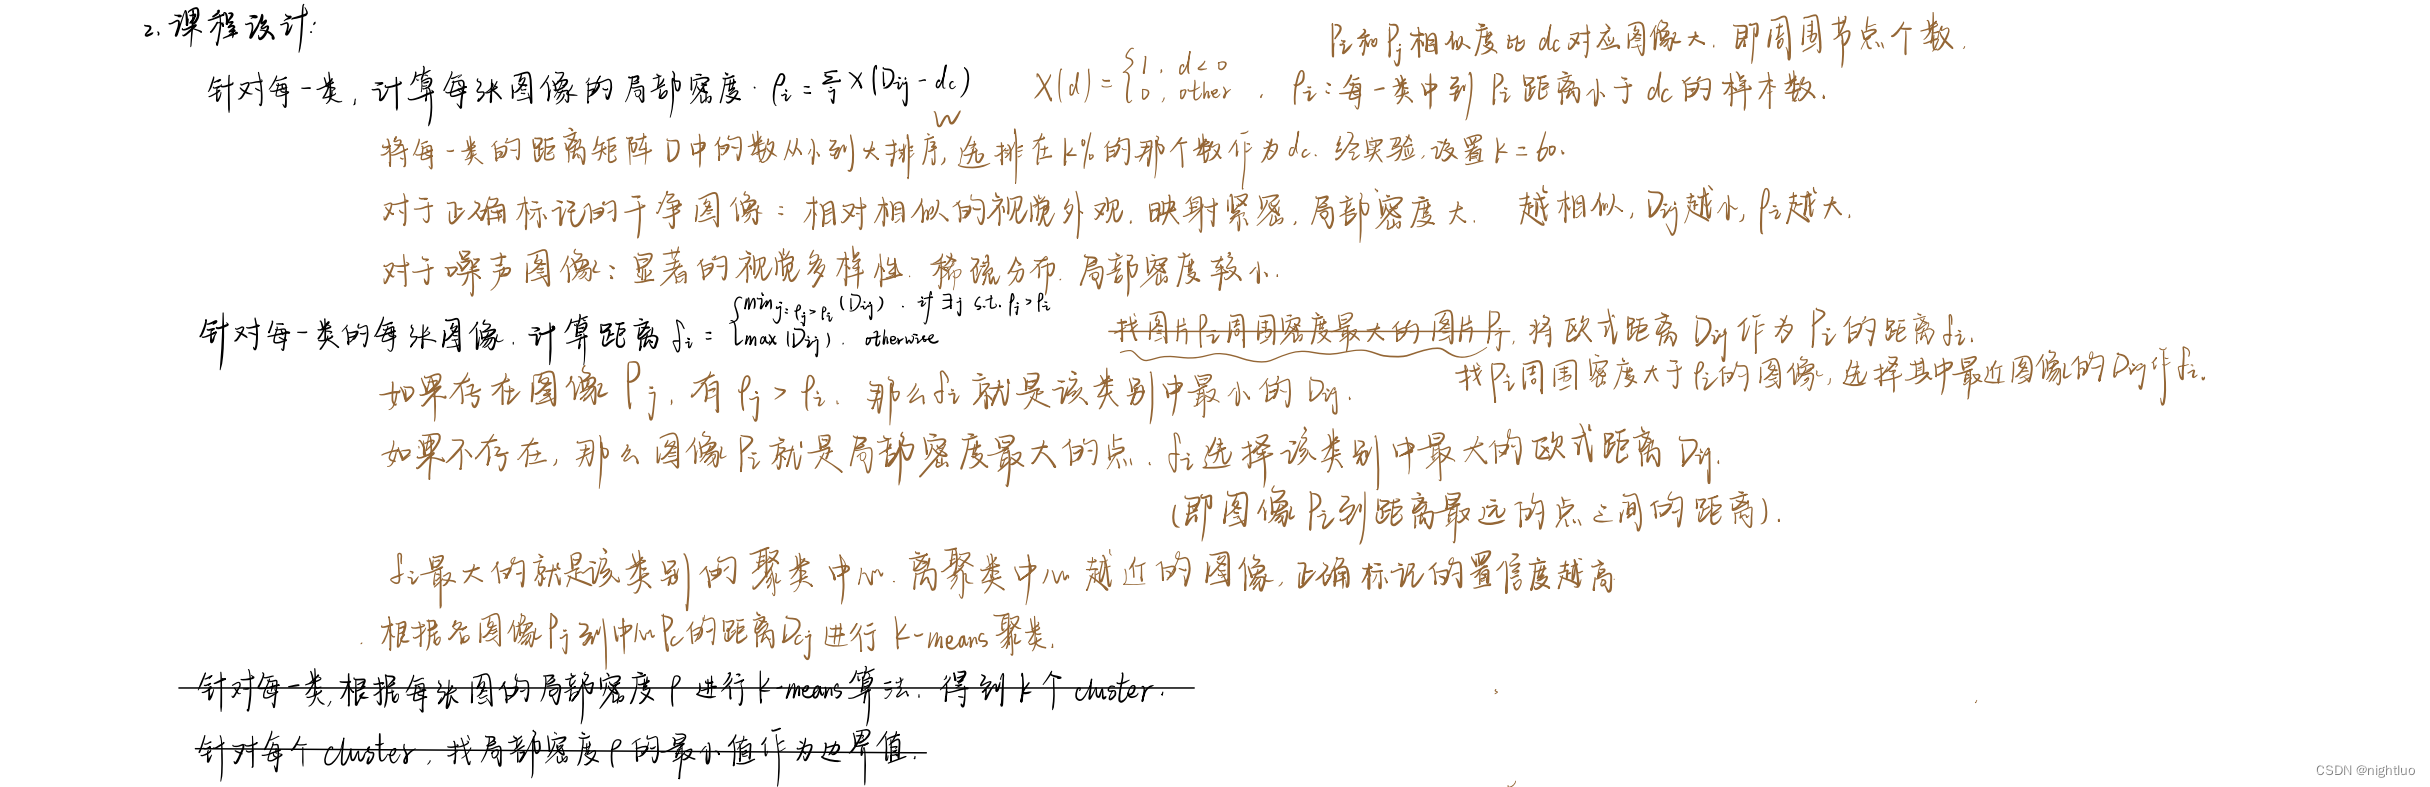 2. 课程设计:
Pi和Pj相似度比dc对应图像大. 即周围节点个数.
针对每一类, 计算每张图像的局部密度. ρi = Σj X(Dij - dc) X(d) = {1, d<0 0, other. ρi: 每一类中到Pi距离小于dc的样本数.
将每一类的距离矩阵D中的数从小到大排序, 选排在k%的那个数作为dc. 经实验, 设置k=60.
对于正确标记的干净图像: 相对相似的视觉外观. 映射紧密. 局部密度大. 越相似, Dij越小, ρi越大.
对于噪声图像: 显著的视觉多样性. 稀疏分布. 局部密度较小.
针对每一类的每张图像. 计算距离 δi = {min j:ρj>ρi (Dij). if ∃j s.t. ρj>ρi max(Dij). otherwise
找图片Pi周围密度最大的图片Pj, 将欧式距离Dij作为Pi的距离δi.
找Pi周围密度大于ρi的图像, 选择其中最近图像的Dij作δi.
如果存在图像Pj, 有ρj>ρi. 那么δi就是该类别中最小的Dij.
如果不存在, 那么图像Pi就是局部密度最大的点. δi选择该类别中最大的欧式距离Dij.
(即图像Pi到距离最远的点之间的距离).
δi最大的就是该类别的聚类中心. 离聚类中心越近的图像, 正确标记的置信度越高
根据各图像Pj到中心Pc的距离Dcj进行k-means聚类.
针对每一类, 根据每张图的局部密度ρ进行k-means算法. 得到k个cluster.
针对每个cluster, 找局部密度ρ的最小值作为边界值.
CSDN @nightluo